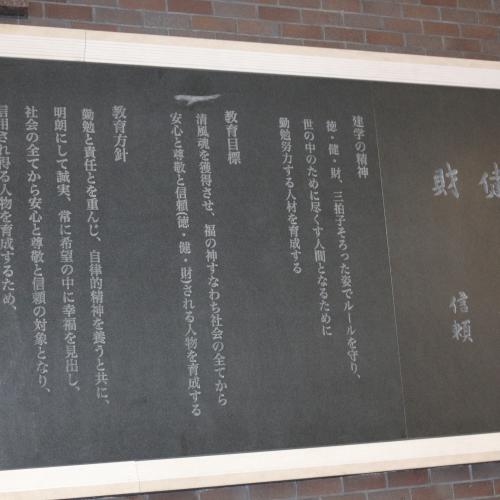 健
財
信頼
建学の精神
徳・健・財 三拍子そろった姿でルールを守り、
世の中のために尽くす人間となるために
勤勉努力する人材を育成する
教育目標
清風魂を獲得させ、福の神すなわち社会の全てから
安心と尊敬と信頼(徳・健・財)される人物を育成する
教育方針
勤勉と責任とを重んじ、自律的精神を養うと共に、
明朗にして誠実、常に希望の中に幸福を見出し、
社会の全てから安心と尊敬と信頼の対象となり、
信用され得る人物を育成するため、